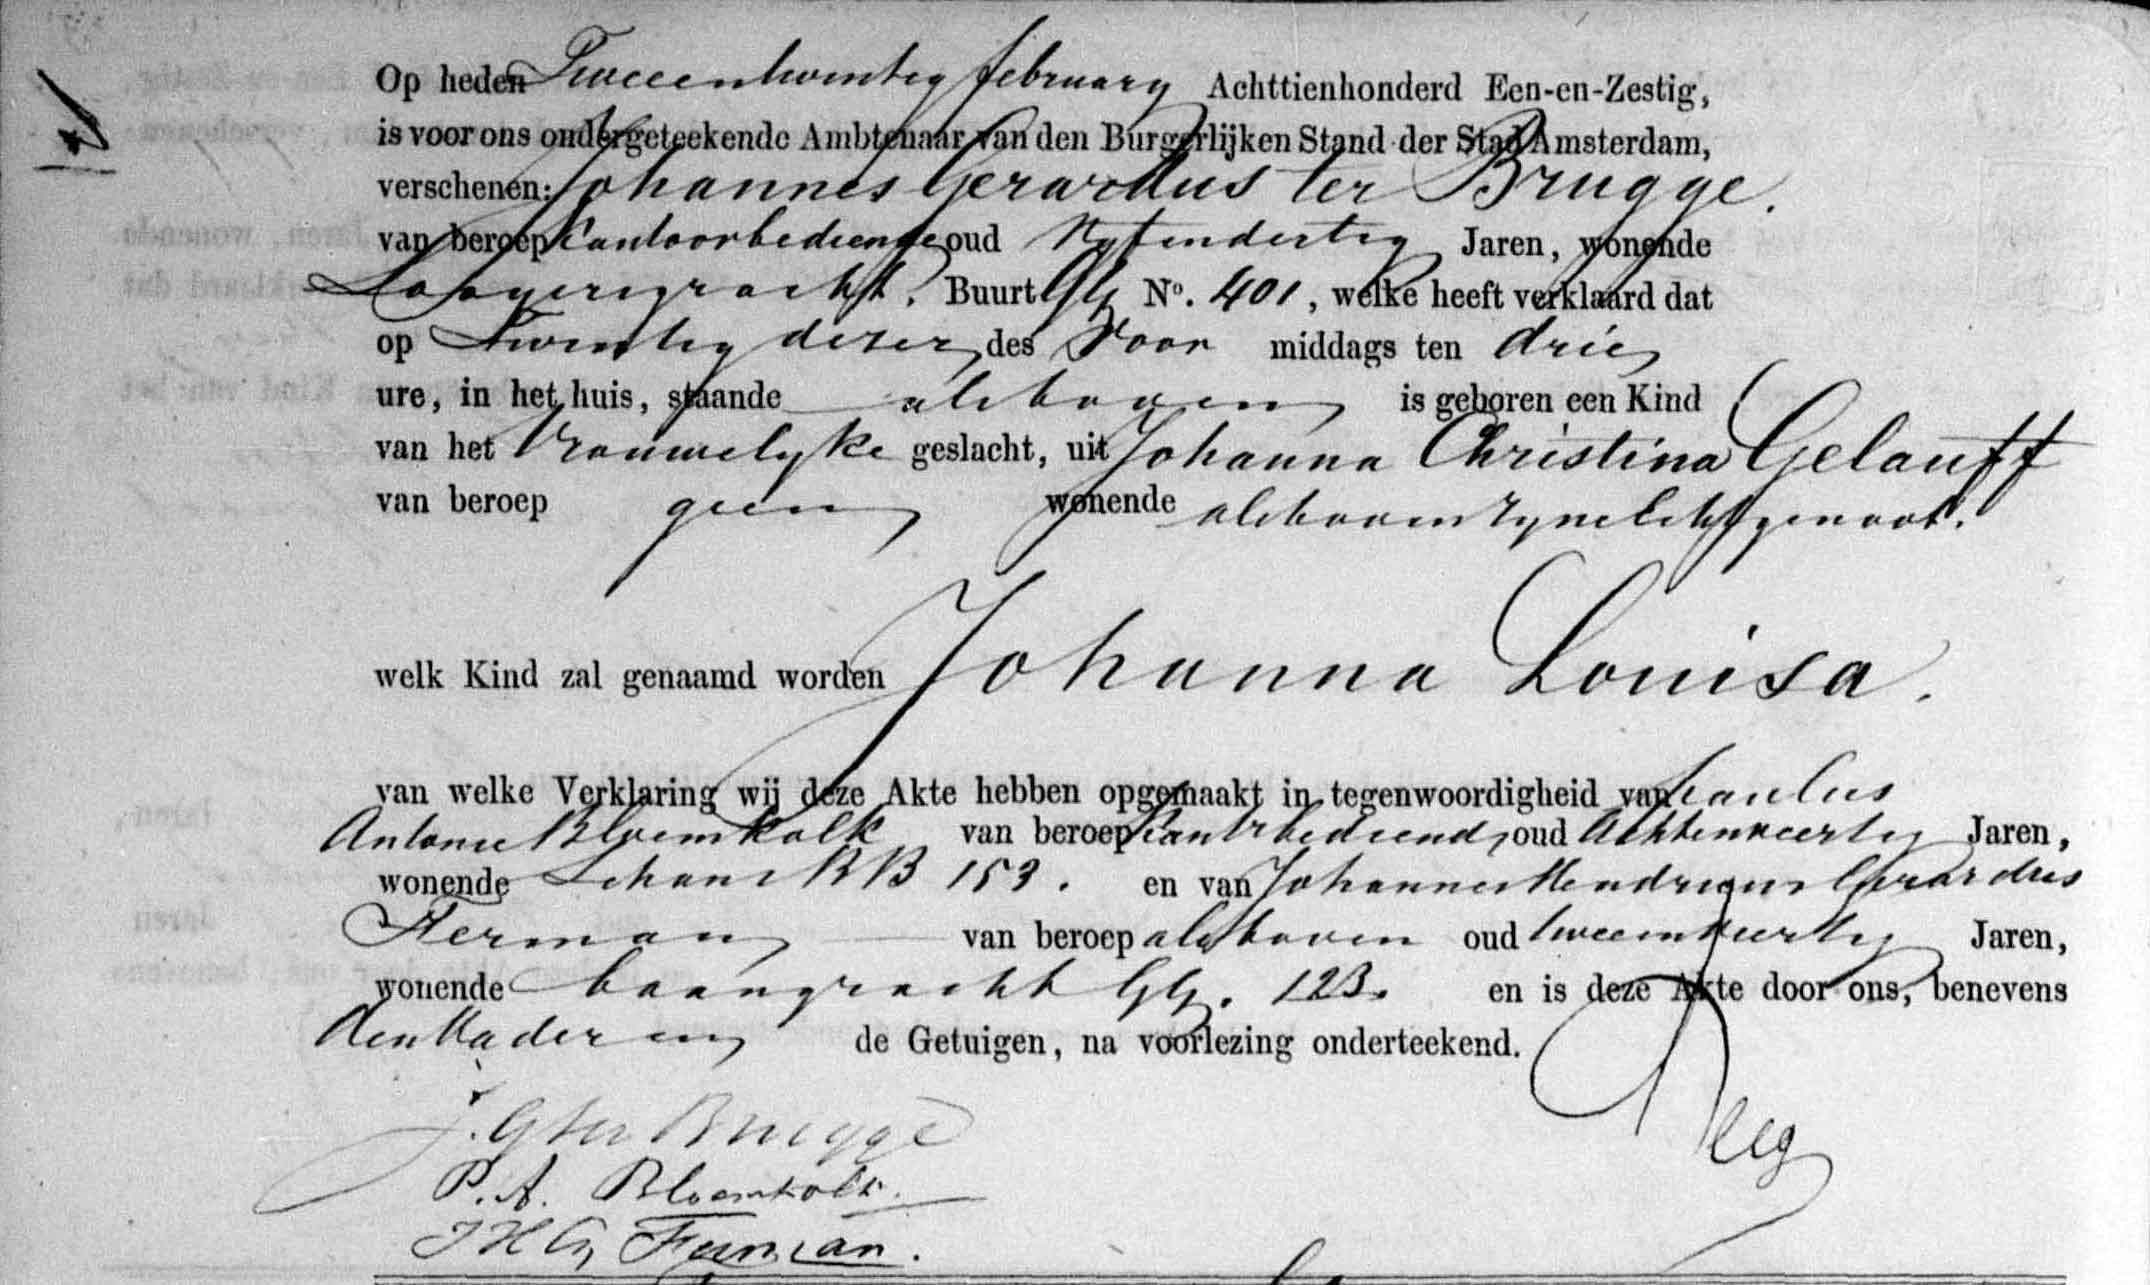 Op heden Tweeentwintig february Achttienhonderd Een-en-Zestig,
is voor ons ondergeteekende Ambtenaar van den Burgerlijken Stand der Stad Amsterdam,
verschenen: Johannes Gerardus ter Brugge.
van beroep Kantoorbediende oud Vyfendertig Jaren, wonende
Looyersgracht. Buurt GG No. 401, welke heeft verklaard dat
op Twintig dezer des Voor middags ten drie
ure, in het huis, staande alsboven is geboren een Kind
van het Vrouwelyke geslacht, uit Johanna Christina Gelauff
van beroep geen wonende alsboven zyne Echtgenoot.
welk Kind zal genaamd worden Johanna Louisa.
van welke Verklaring wij deze Akte hebben opgemaakt in tegenwoordigheid van Paulus
Antonie Bloemkolk van beroep Kantrbediend oud Achtenveertig Jaren,
wonende Schans RB 153. en van Johannes Hendricus Gerardus
Ferman van beroep alsboven oud tweeenveertig Jaren,
wonende baangracht GG. 123. en is deze Akte door ons, benevens
den Vader en de Getuigen, na voorlezing onderteekend.
J. G ter Brugge
P. A. Bloemkolk.
J H G Ferman.